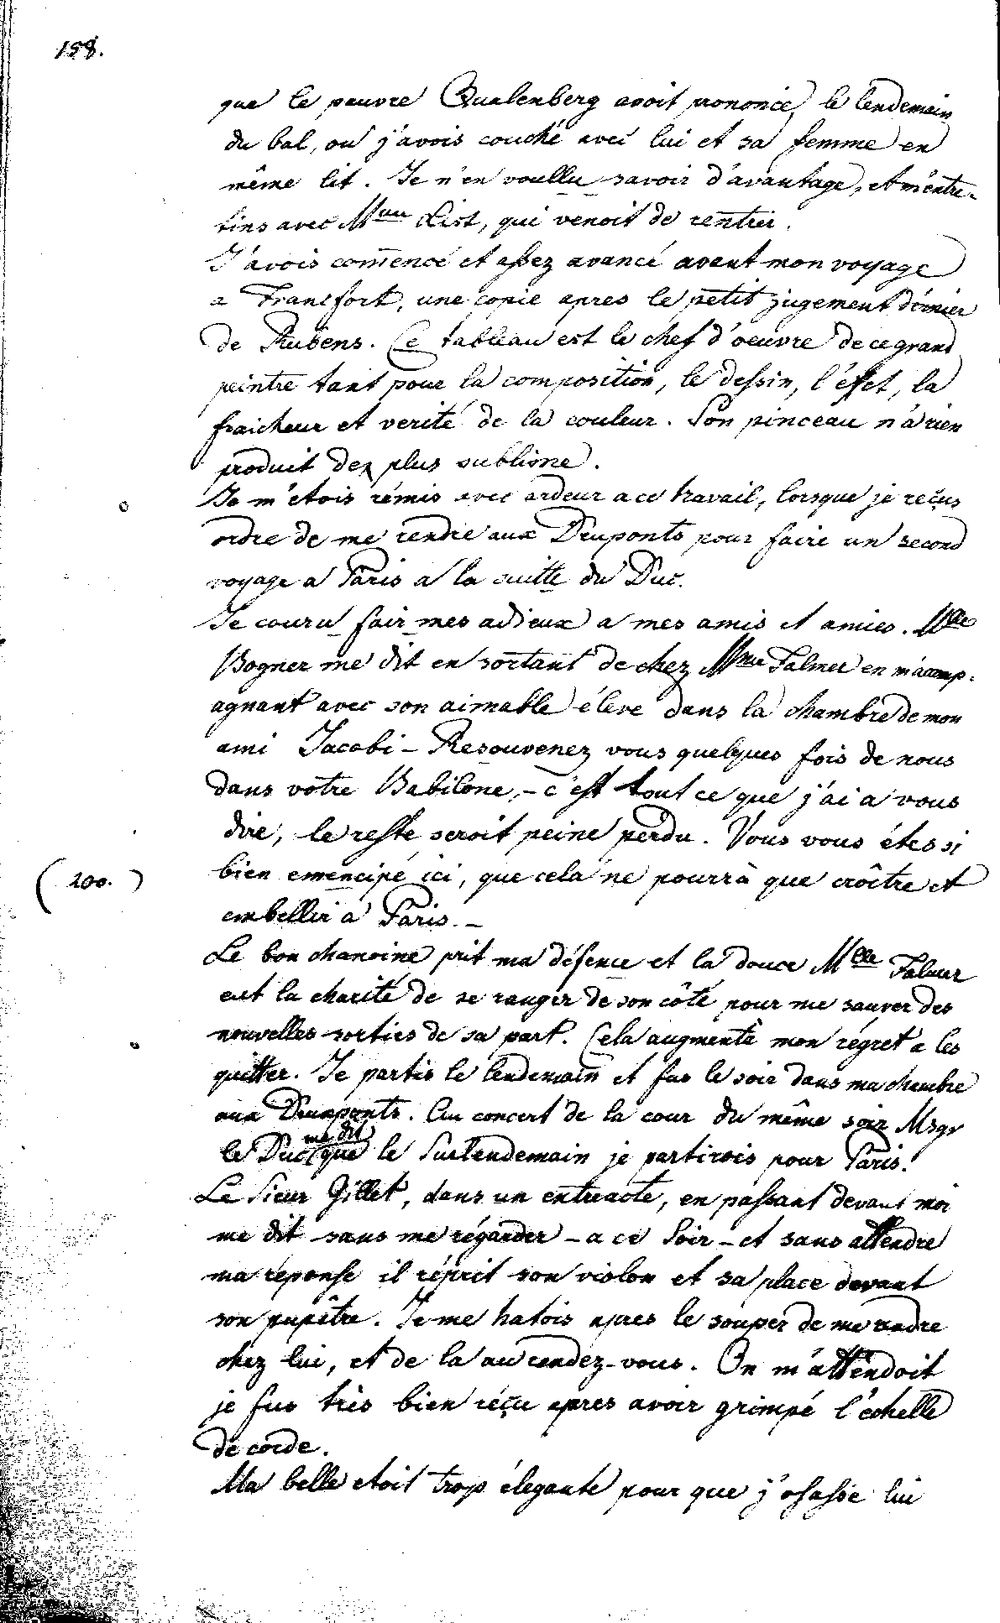 158.
que le pauvre Qualenberg avoit prononcé, le lendemain
du bal, où j'avois couché avec lui et sa femme en
même lit. Je n'en voullu savoir d'avantage, et m'entre-
tins avec Mme List, qui venoit de rentrer.
J'avois com̄encé et assez avancé avant mon voyage
a Francfort, une copie apres le petit jugement dérnier
de Rubens. Ce tableau est le chef d'oeuvre de ce grand
peintre tant pour la composition, le dessin, l'éffet, la
fraicheur et verité de la couleur. Son pinceau n'a rien
produit de plus sublime.
Je m'etois rémis avec ardeur a ce travail, lorsque je reçus
ordre de me rendre aux Deuponts pour faire un second
voyage a Paris a la suitte du Duc.
Je couru fair mes adieux a mes amis et amies. Mlle
Bogner me dit en sortant de chez Mme Falmer en m'acomp-
agnant avec son aimable éleve dans la chambre de mon
ami Jacobi – Resouvenez vous quelques fois de nous
dans votre Babilone, – c'est tout ce que j'ai a vous
dire, le reste seroit peine perdu. Vous vous étes si
(200.) bien emencipé ici, que cela ne pourrà que croître et
embellir a Paris. –
Le bon chanoine prit ma défence et la douce Mlle Falmer
eut la charité de se ranger de son côté pour me sauver des
nouvelles sorties de sa part. Cela augmenta mon régret a les
quitter. Je partis le lendemain et fus le soir dans ma chambre
aux Deuxponts. Au concert de la cour du même soir Msgr
le Duc me dit que le Surlendemain je partirois pour Paris.
Le Sieur Gillet, dans un entreacte, en passant devant moi
me dit sans me régarder – a ce Soir – et sans attendre
ma reponse il réprit son violon et sa place devant
son pupître. Je me hatois apres le souper de me rendre
chez lui, et de la au rendez-vous. On m'attendoit
je fus très bien réçu apres avoir grimpé l'echelle
de corde.
Ma belle etoit trop élegante pour que j'osasse lui